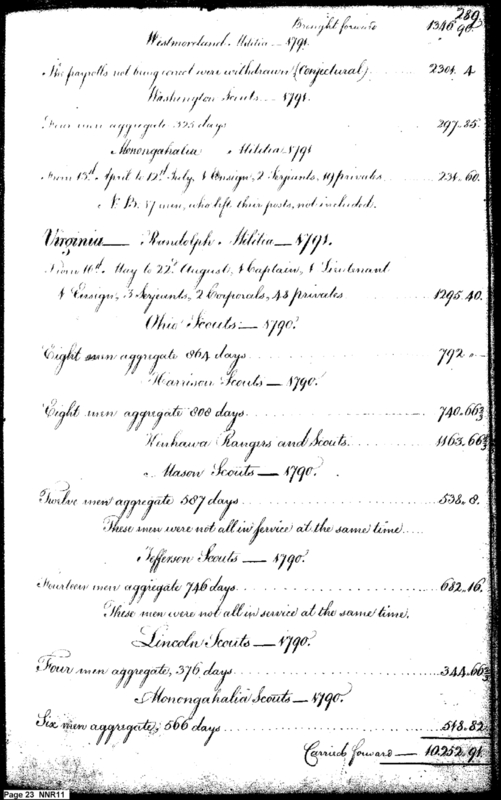 289
Brought forward 1346.90.
Westmoreland Militia — 1791.
The payrolls not being correct were withdrawn (Conjectural) 2301. 4
Washington Scouts — 1791.
Four men aggregate 325 days 297.85.
Monongahalia Militia 1791
From 13th. April to 12th. July, 1 Ensign, 2 Serjeants, 19 privates 231.60.
N. B. 17 men, who left their posts, not included.
Virginia — Randolph Militia — 1791.
From 16th. May to 22d. August, 1 Captain, 1 Lieutenant
1 Ensign, 3 Serjeants, 2 Corporals, 48 privates 1295.40.
Ohio Scouts — 1790.
Eight men aggregate 864 days 792 "
Harrison Scouts — 1790.
Eight men aggregate 808 days 740.66⅔
Kenhawa Rangers and Scouts 1163.66⅔
Mason Scouts — 1790.
Twelve men aggregate 587 days 538.8.
These men were not all in service at the same time
Jefferson Scouts — 1790.
Fourteen men aggregate 746 days 682.16.
These men were not all in service at the same time.
Lincoln Scouts — 1790.
Four men aggregate, 376 days 344.66⅔
Monongahalia Scouts — 1790.
Six men aggregate, 566 days 518.82
Carried forward — 10.252.91.
Page 23 NNR11